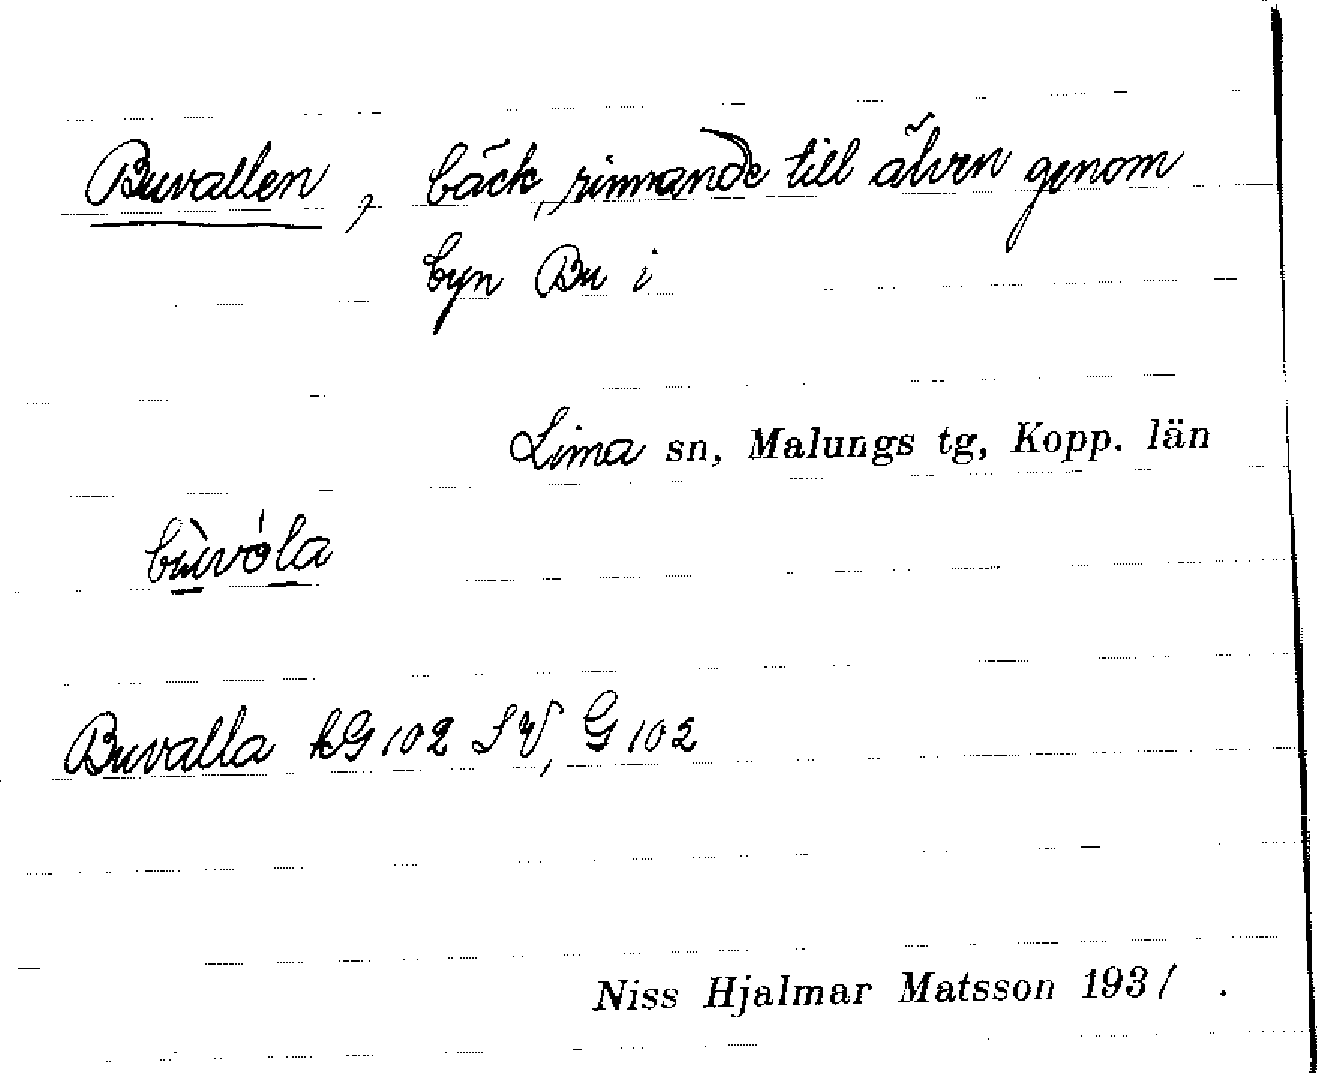 Buvallen, bäck, rinnande till älven genom
byn Bu i
Lima sn, Malungs tg, Kopp. län
bùvóla
Buvalla kG 102 SV, G 102
Niss Hjalmar Matsson 1931.